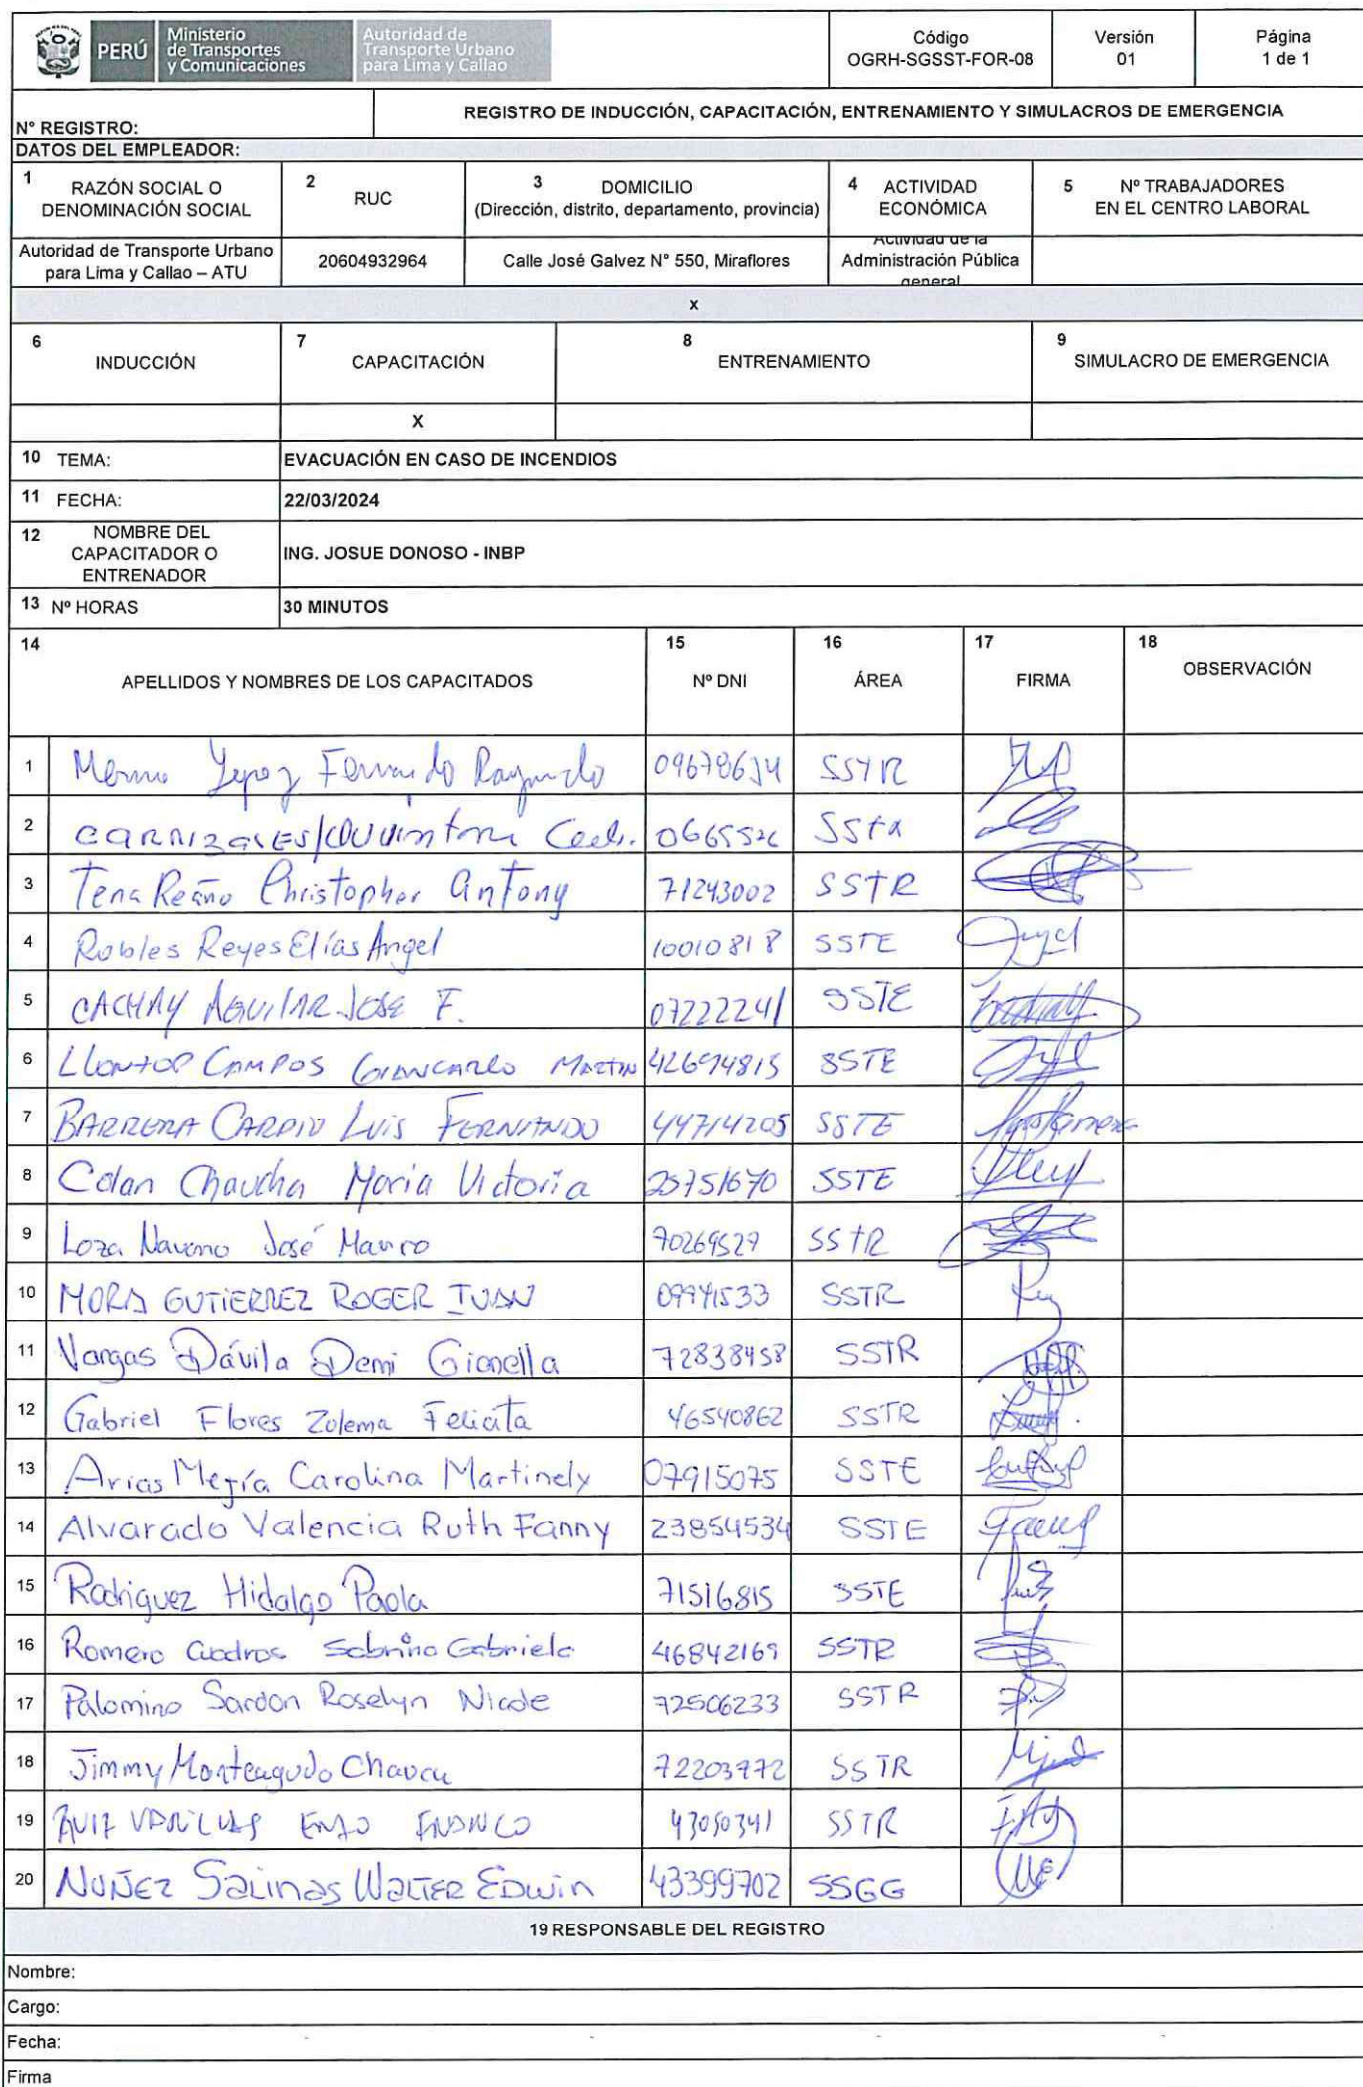 PERÚ Ministerio de Transportes y Comunicaciones Autoridad de Transporte Urbano para Lima y Callao
Código OGRH-SGSST-FOR-08 Versión 01 Página 1 de 1
Nº REGISTRO: REGISTRO DE INDUCCIÓN, CAPACITACIÓN, ENTRENAMIENTO Y SIMULACROS DE EMERGENCIA
DATOS DEL EMPLEADOR:
1 RAZÓN SOCIAL O DENOMINACIÓN SOCIAL 2 RUC 3 DOMICILIO (Dirección, distrito, departamento, provincia) 4 ACTIVIDAD ECONÓMICA 5 Nº TRABAJADORES EN EL CENTRO LABORAL
Autoridad de Transporte Urbano para Lima y Callao – ATU 20604932964 Calle José Galvez N° 550, Miraflores Actividad de la Administración Pública general
x
6 INDUCCIÓN 7 CAPACITACIÓN 8 ENTRENAMIENTO 9 SIMULACRO DE EMERGENCIA
X
10 TEMA: EVACUACIÓN EN CASO DE INCENDIOS
11 FECHA: 22/03/2024
12 NOMBRE DEL CAPACITADOR O ENTRENADOR ING. JOSUE DONOSO - INBP
13 Nº HORAS 30 MINUTOS
14 APELLIDOS Y NOMBRES DE LOS CAPACITADOS 15 Nº DNI 16 ÁREA 17 FIRMA 18 OBSERVACIÓN
1 Fernando Raymundo SSTR
2 SSTR
3 Tena Reaño Christopher Antony 71243002 SSTR
4 Robles Reyes Elías Angel 10010818 SSTE
5 CACHAY AGUILAR JOSE F. 07222241 SSTE
6 LLONTOP CAMPOS GIANCARLO MARTIN 42694815 SSTE
7 BARRERA CARPIO LUIS FERNANDO 44714205 SSTE
8 Colan Chaucha Maria Victoria 25751670 SSTE
9 Loza Navarro José Mauro 70269527 SSTR
10 MORA GUTIERREZ ROGER IVAN SSTR
11 Vargas Dávila Demi Gianella 72838458 SSTR
12 Gabriel Flores Zulema Felicita 46540862 SSTR
13 Arias Mejía Carolina Martinely 07915075 SSTE
14 Alvarado Valencia Ruth Fanny 23854534 SSTE
15 Rodriguez Hidalgo Paola 71516815 SSTE
16 Romero Cuadros Sabrina Gabriela 46842169 SSTR
17 Palomino Sardon Roselyn Nicole 72506233 SSTR
18 Jimmy Monteagudo 72203772 SSTR
19 RUIZ ENZO 43050341 SSTR
20 NUÑEZ SALINAS WALTER EDWIN 43399702 SSGG
19 RESPONSABLE DEL REGISTRO
Nombre:
Cargo:
Fecha:
Firma